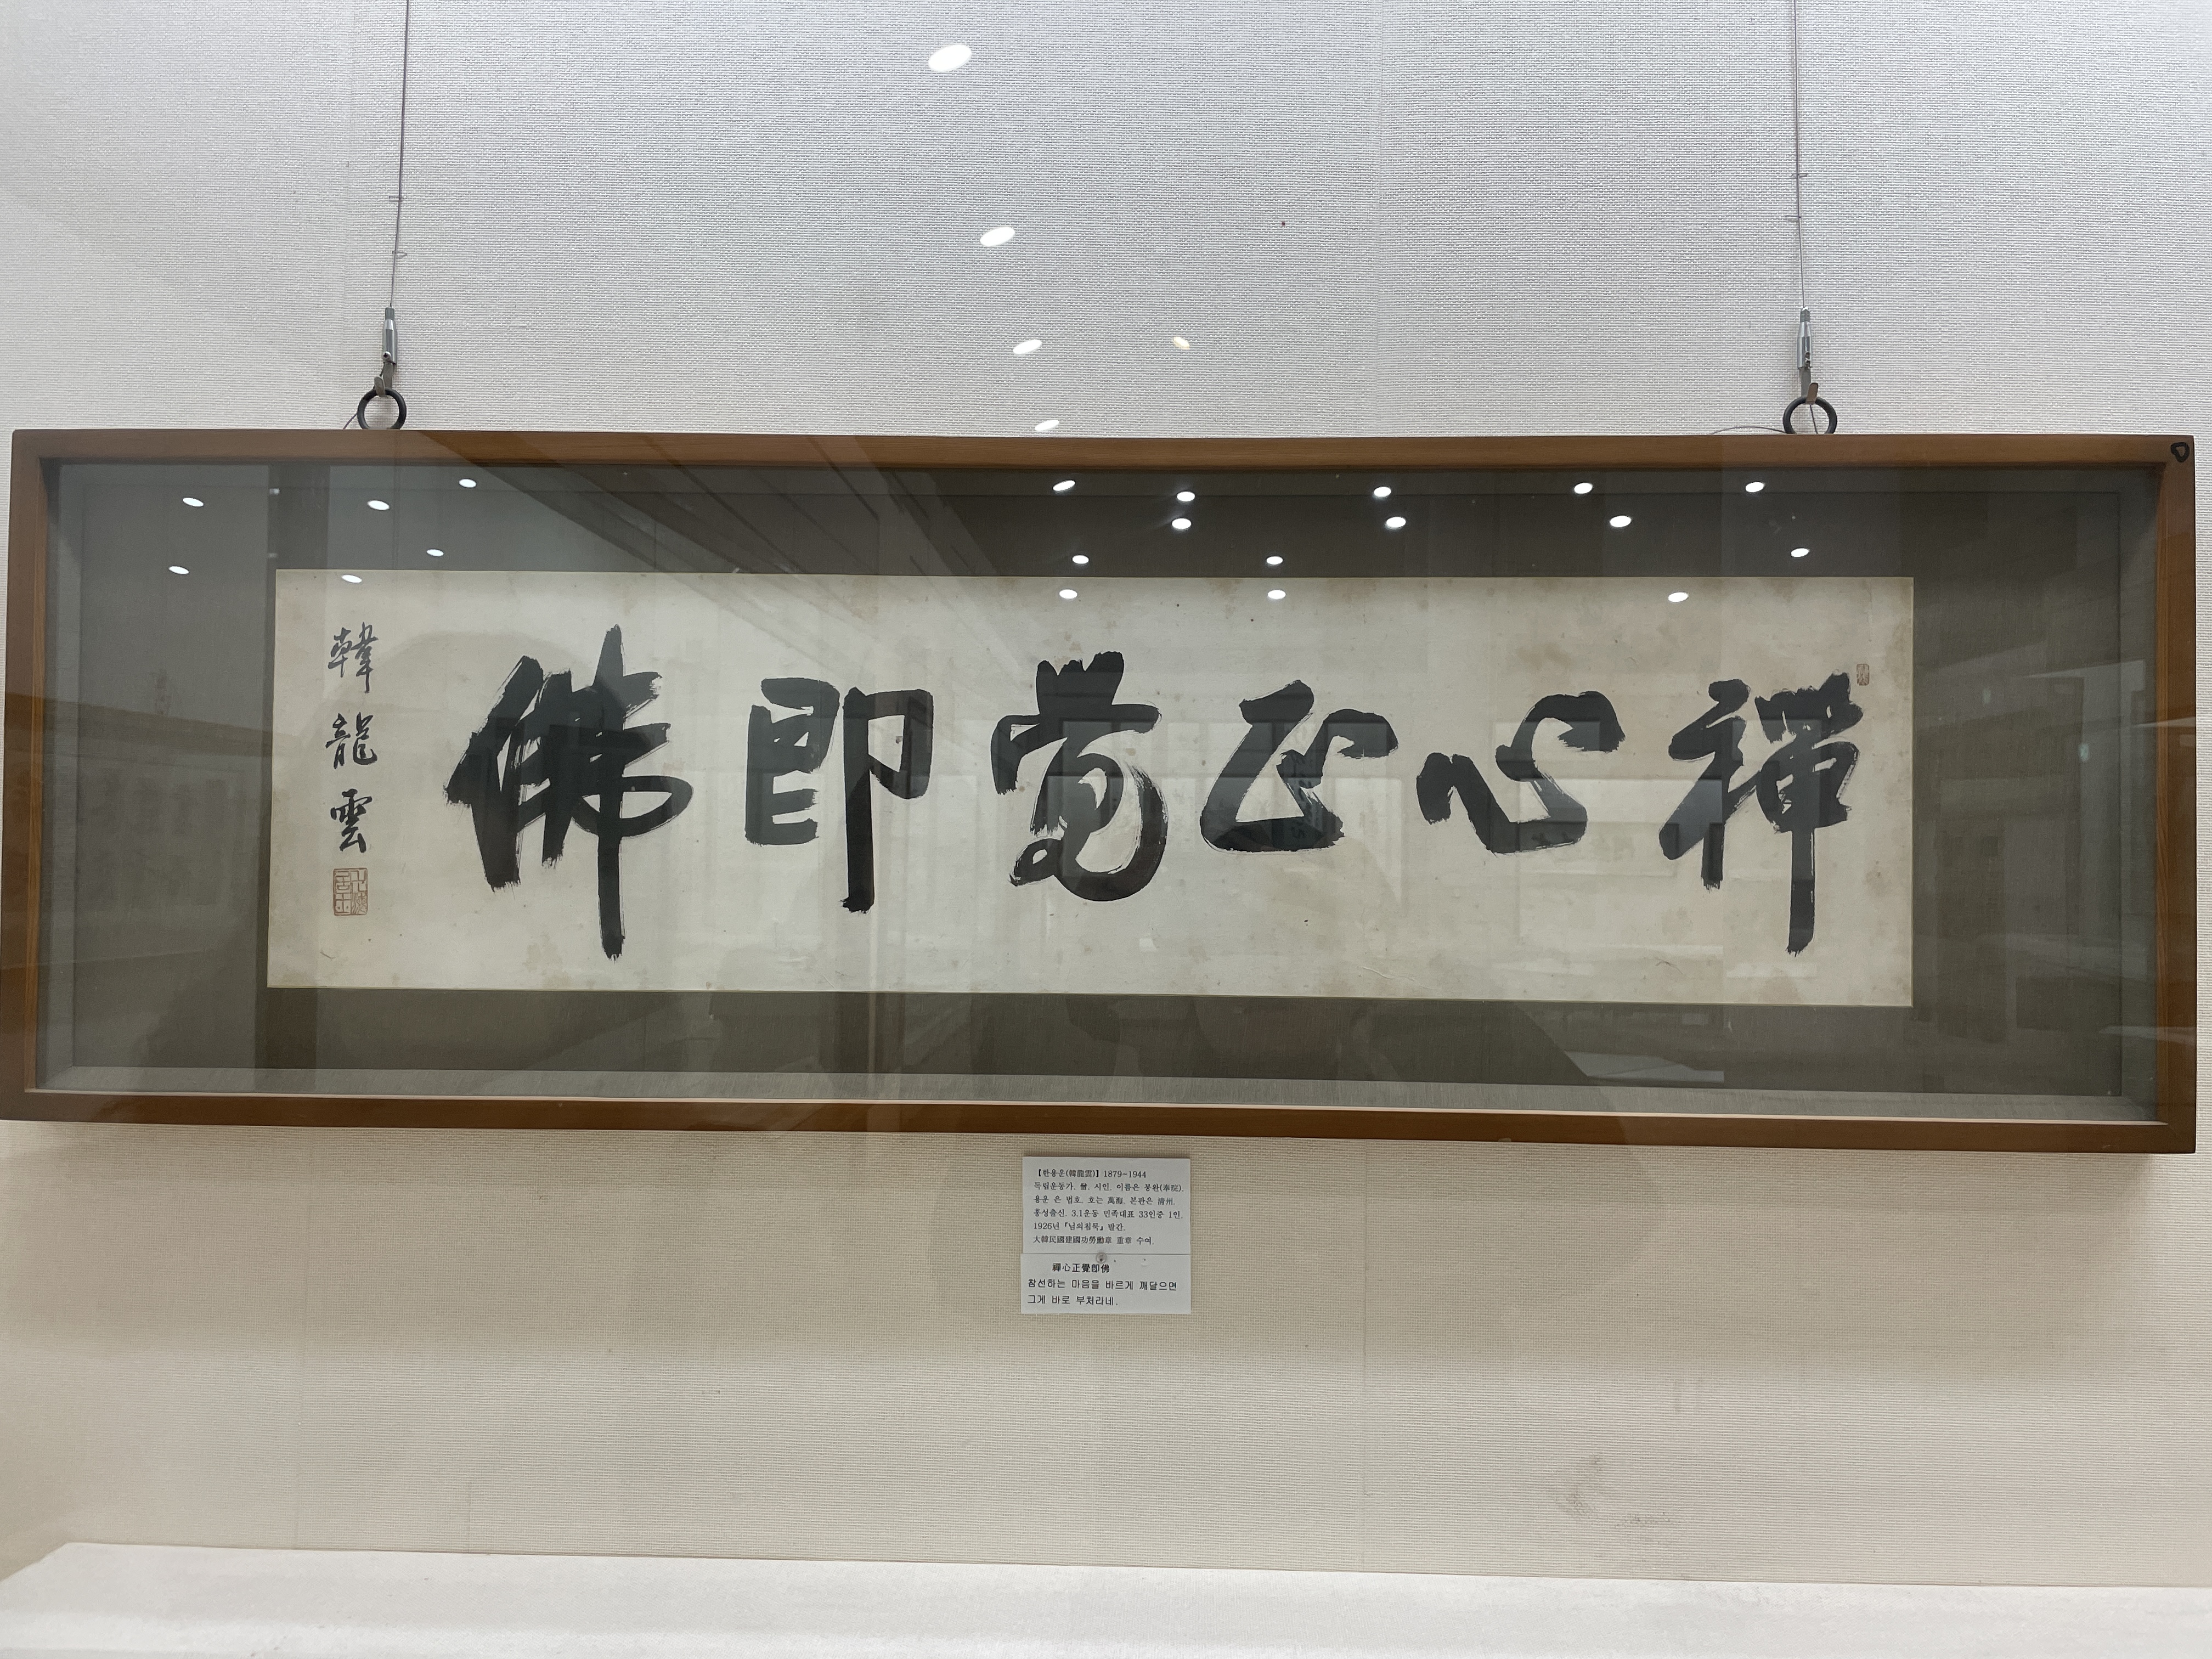 禪心正覺即佛
韓龍雲
【한용운(韓龍雲)】1879~1944
독립운동가. 僧. 시인. 이름은 봉완(奉阮).
용운 은 법호. 호는 萬海. 본관은 淸州.
홍성출신. 3.1운동 민족대표 33인중 1인.
1926년『님의침묵』발간.
大韓民國建國功勞勳章 重章 수여.
禪心正覺卽佛
참선하는 마음을 바르게 깨달으면
그게 바로 부처라네.